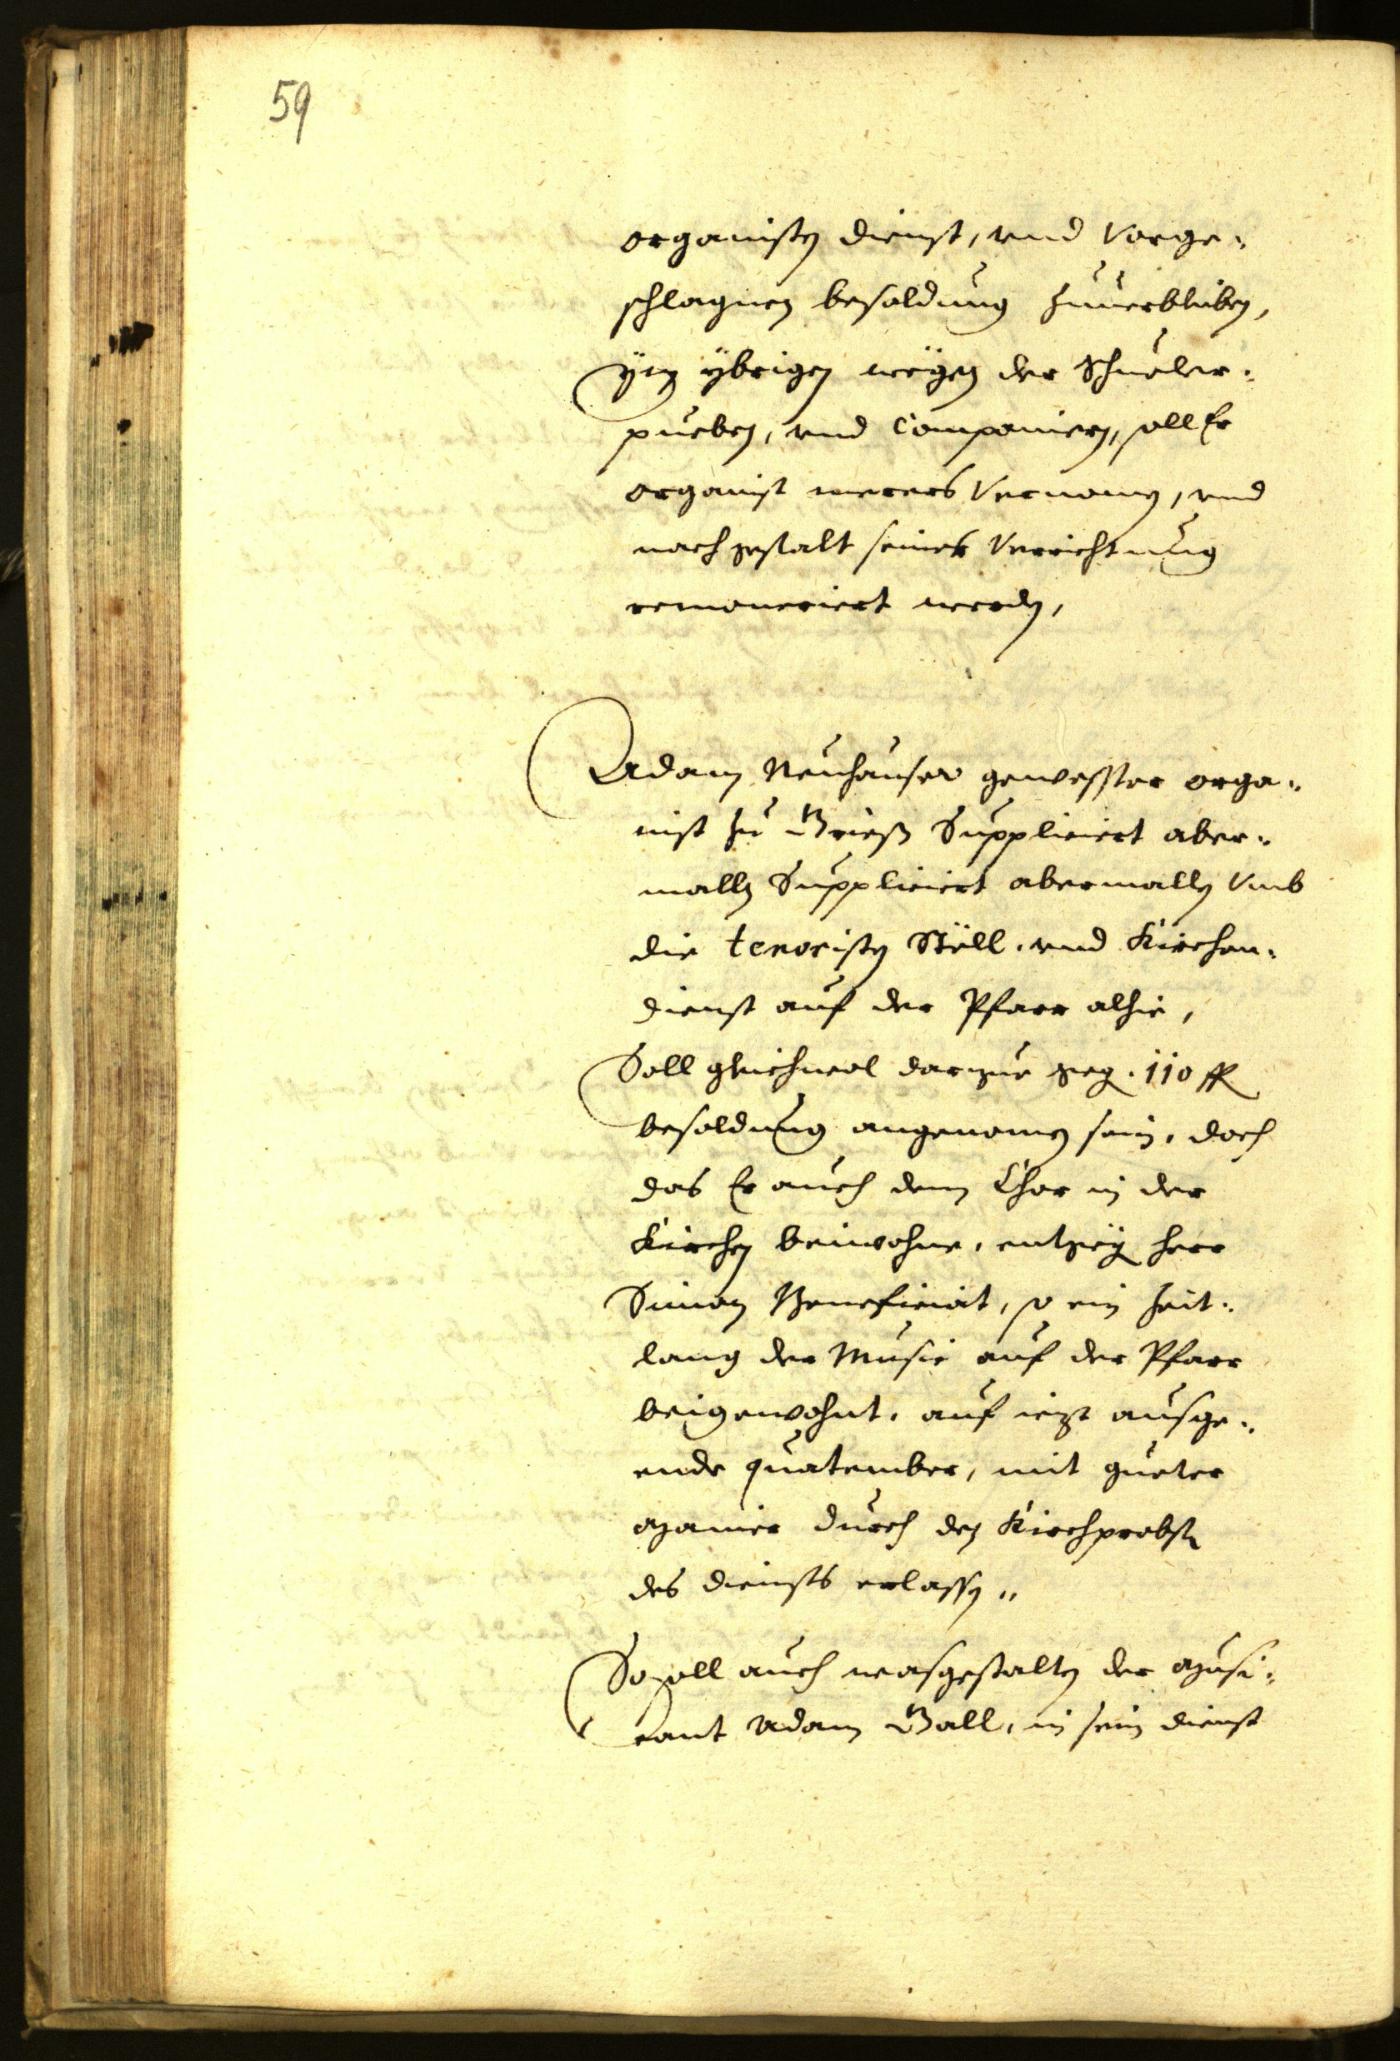 59
organisten dienst, vnd Vorge=
schlagnen besoldung zuuerbleiben,
ÿm ybrigen wegen der Schueler=
pueben, vnd Componiern, soll Er
organist merers Vernomen, vnd
nach gestalt seiner Verrichtung
remoneriert werden,
Adam Neuhauser gewesster orga=
nist zu Briexen Suppliciert aber=
mallen Suppliciert abermallen Vmb
die tenoristen Stöll, vnd Kirchen=
dienst auf der Pfarr alhie,
Soll gleichwol darzue geg. 110 fl
besoldung angenomen sein, doch
das Er auch dem Chor in der
Kirchen beiwohne, entgeg herr
Simon Beneficiat, so ein zeit=
lang der Music auf der Pfarr
beigewohnt, auf iezt ausge=
ende quatember, mit gueter
manier durch den Kirchprobst
des diensts erlassen,,
So soll auch masgestalten der Musi=
cant Adam Ball, in sein dienst